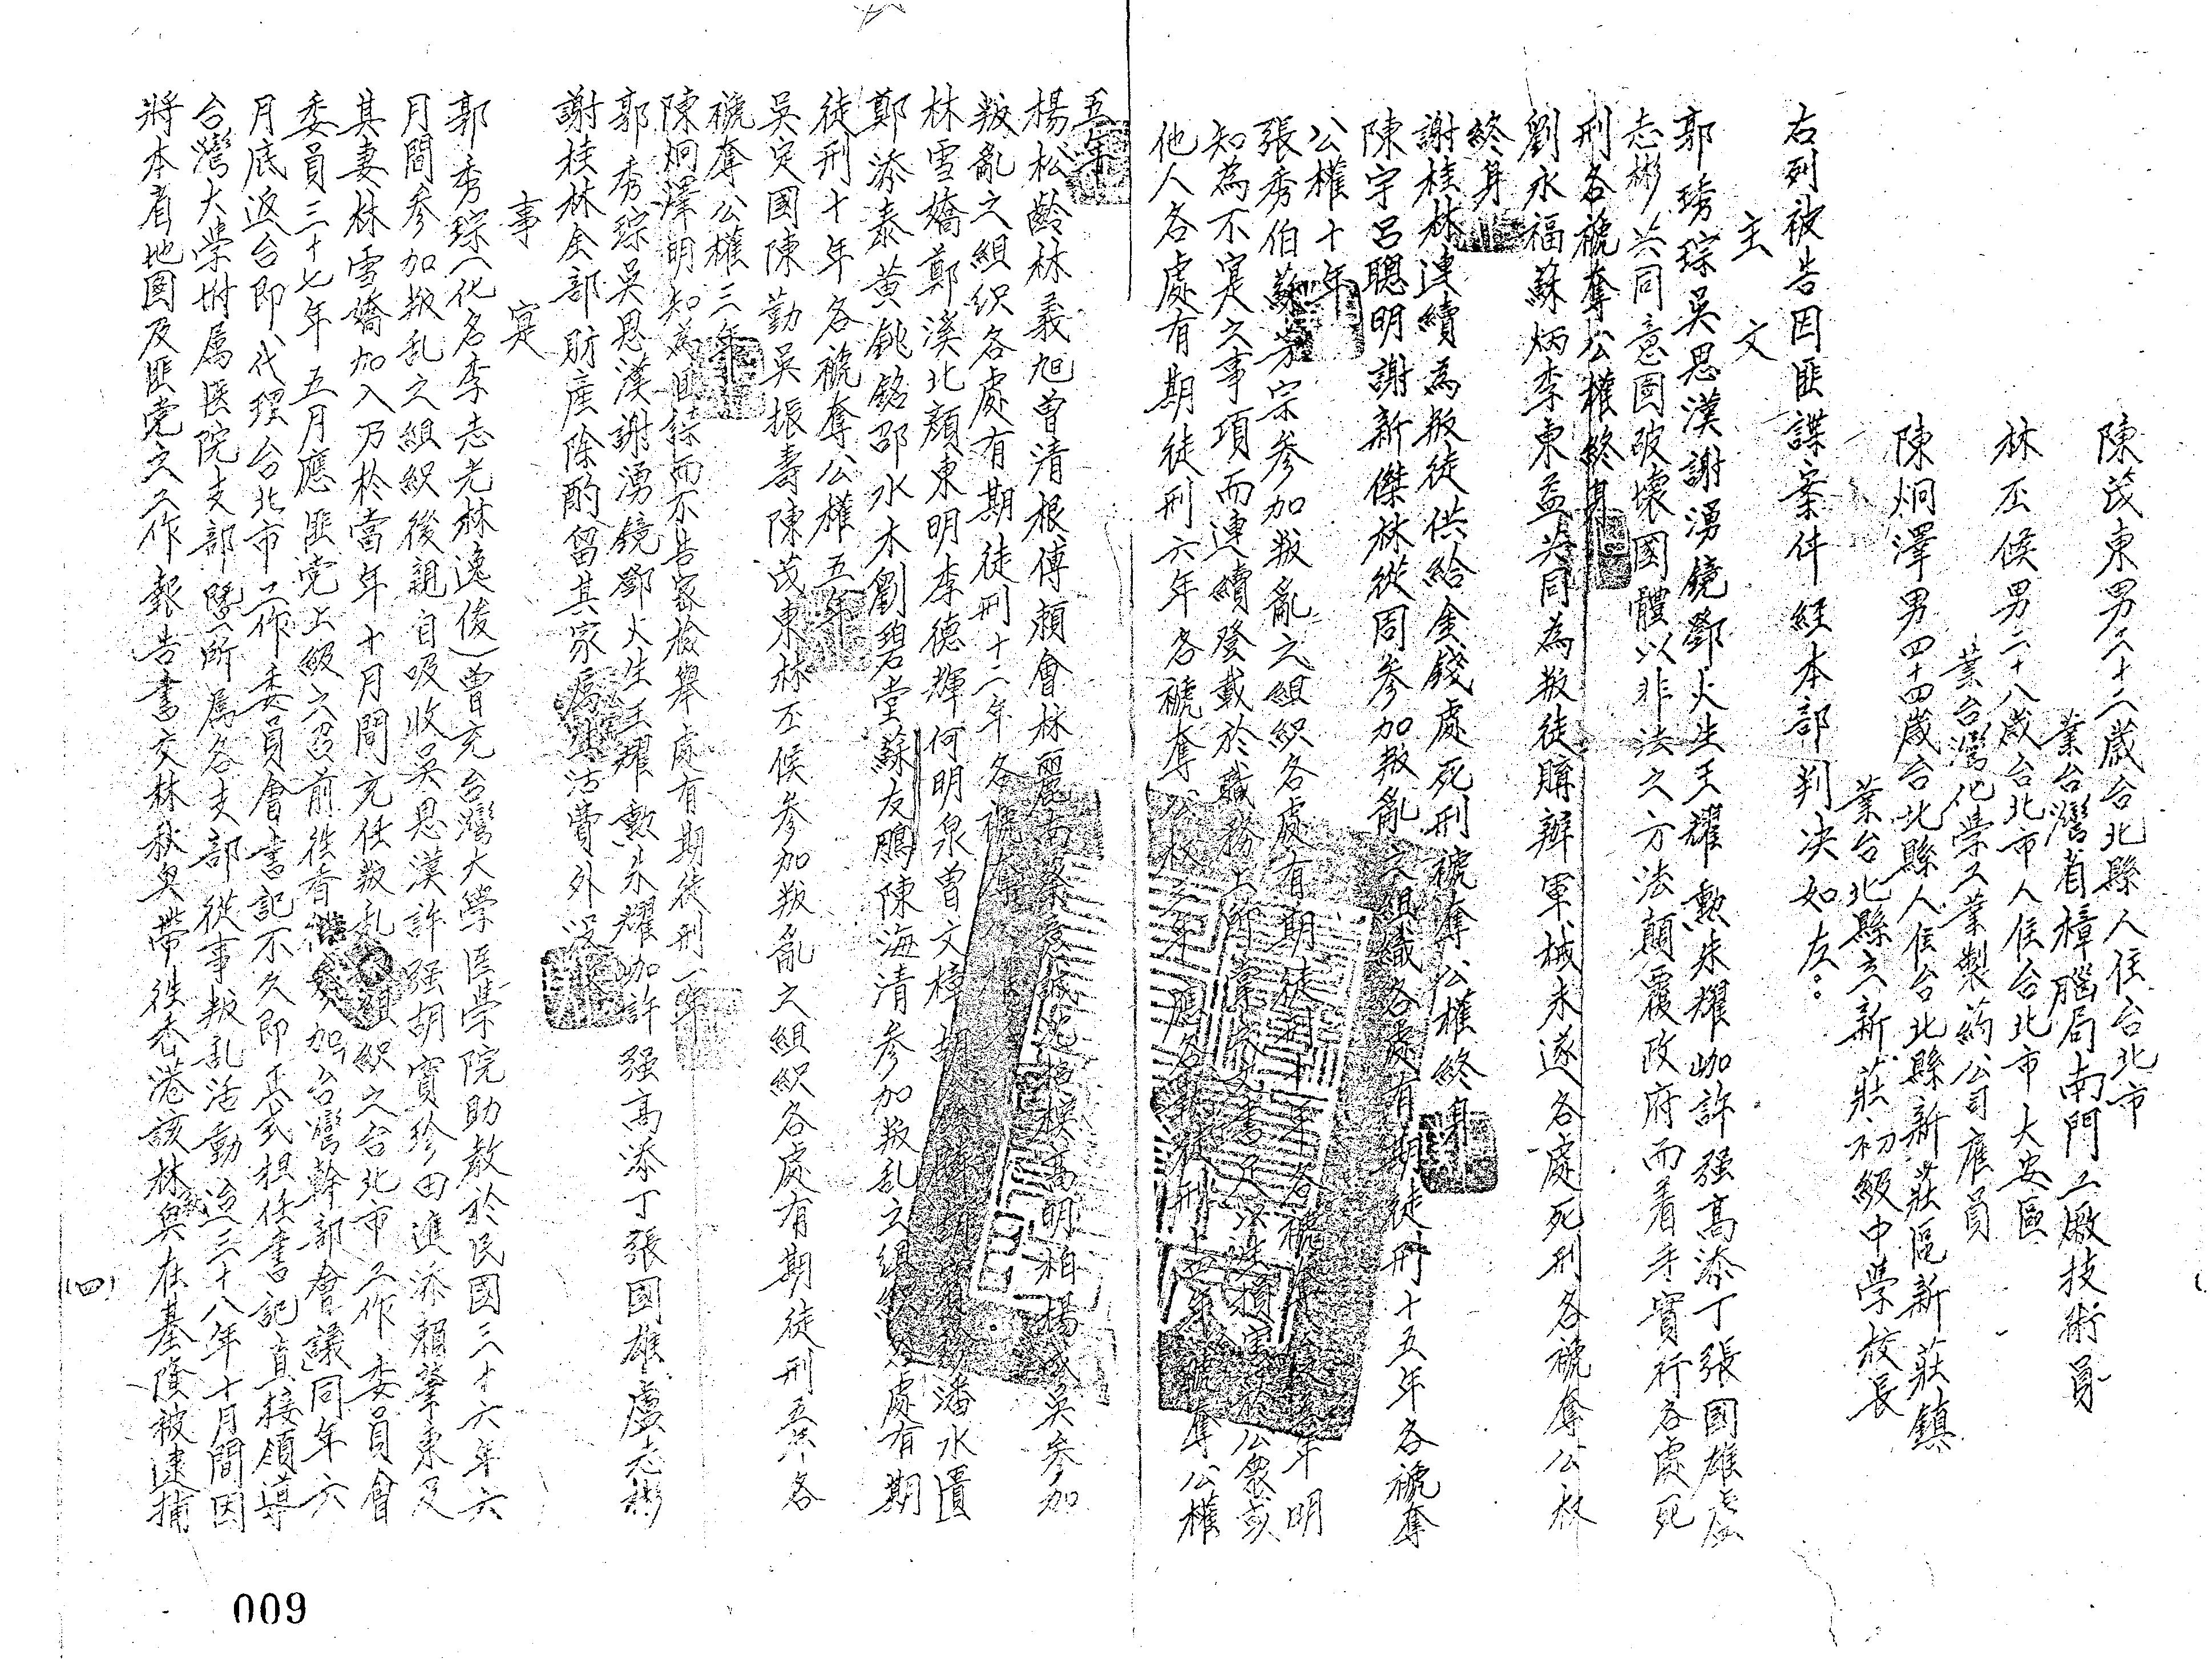 陳茂東男三十二歲台北縣人住台北市
業台灣省樟腦局南門工廠技術員
林丕候男二十八歲台北市人住台北市大安區
業台灣化學工業製葯公司雇員
陳炯澤男四十四歲台北縣人住台北縣新莊區新莊鎮
業台北縣立新莊初級中學校長
右列被告因匪諜案件經本部判决如左：
主文
郭琇琮吳思漢謝湧鏡鄧火生王耀勲朱耀咖許强高添丁張國雄盧
志彬共同意圖破壞國體以非法之方法顛覆政府而着手實行各處死
刑各褫奪公權終身
劉永福蘇炳李東益共同為叛徒購辦軍械未遂各處死刑各褫奪公权
終身
謝桂林連續為叛徒供給金錢處死刑褫奪公權終身
陳宇呂聰明謝新傑林從周参加叛亂之組織各處有期徒刑十五年各褫奪
公權十年
張秀伯蘇芳宗参加叛亂之組织各處有期徒刑十年各褫奪公 年明
知為不寔之事項而連續登載於職務上所掌 文書足以 損害 公衆或
他人各處有期徒刑六年各褫奪公权 年應各執 徒刑十 年褫奪公權
五年
楊松齡林義旭曾清根傅賴會林麗南 高明柏楊 吳参加
叛亂之組织各處有期徒刑十二年各褫奪
林雪嬌鄭溪北顏東明李德輝何明泉曾文樟胡 潘水匱
鄭添泰黃鈍銘邵水木劉碧堂蘇友鵬陳海清参加叛乱之組織各處有期
徒刑十年各褫奪公權五年
吳定國陳勤吳振壽陳茂東林丕候参加叛亂之組织各處有期徒刑五年各
褫奪公權三年
陳炯澤明知為匪諜而不告密檢舉處有期徒刑一年
郭秀琮吳思漢謝湧鏡鄧火生王耀勲朱耀咖許强高添丁張國雄盧志彬
謝桂林全部財產除酌留其家屬生活費外没收
事寔
郭秀琮（化名李志光林逸俊）曾充台灣大學医學院助教於民國三十六年六
月間参加叛乱之組織後親自吸收吳思漢許强胡寶珍田進添賴肇東及
其妻林雪嬌加入乃於當年十月間充任叛乱組织之台北市工作委員會
委員三十七年五月應匪党上級之召前往香港参加「台灣幹部會議」同年六
月底返台即代理台北市工作委員會書記不久即正式担任書記直接領導
台灣大學附属医院支部暨所属各支部從事叛乱活動迨三十八年十月間因
將本省地图及匪党之工作報告書交林秋興帶往香港該林秋興在基隆被逮捕
（四）
009